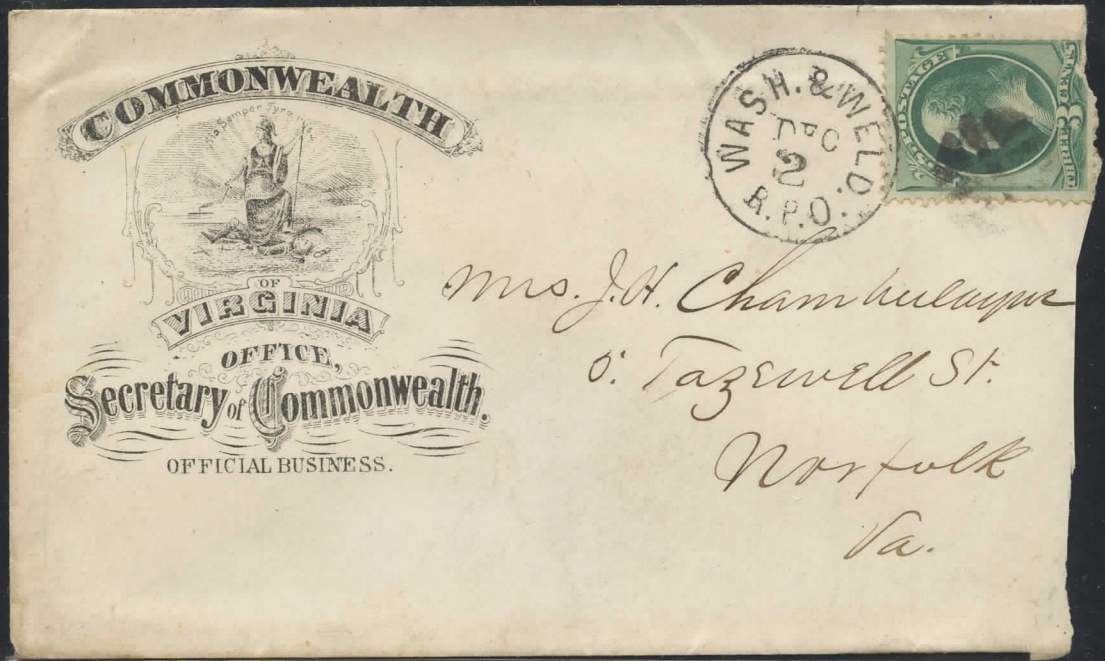 COMMONWEALTH
Semper Tyrannis
OF
VIRGINIA
OFFICE,
Secretary of Commonwealth.
OFFICIAL BUSINESS.
WASH. & WELD.
DEC
2
R.P.O.
U.S. POSTAGE
3
Mrs. J. H. Chamberlayne
5. Tazewell St.
Norfolk
Va.